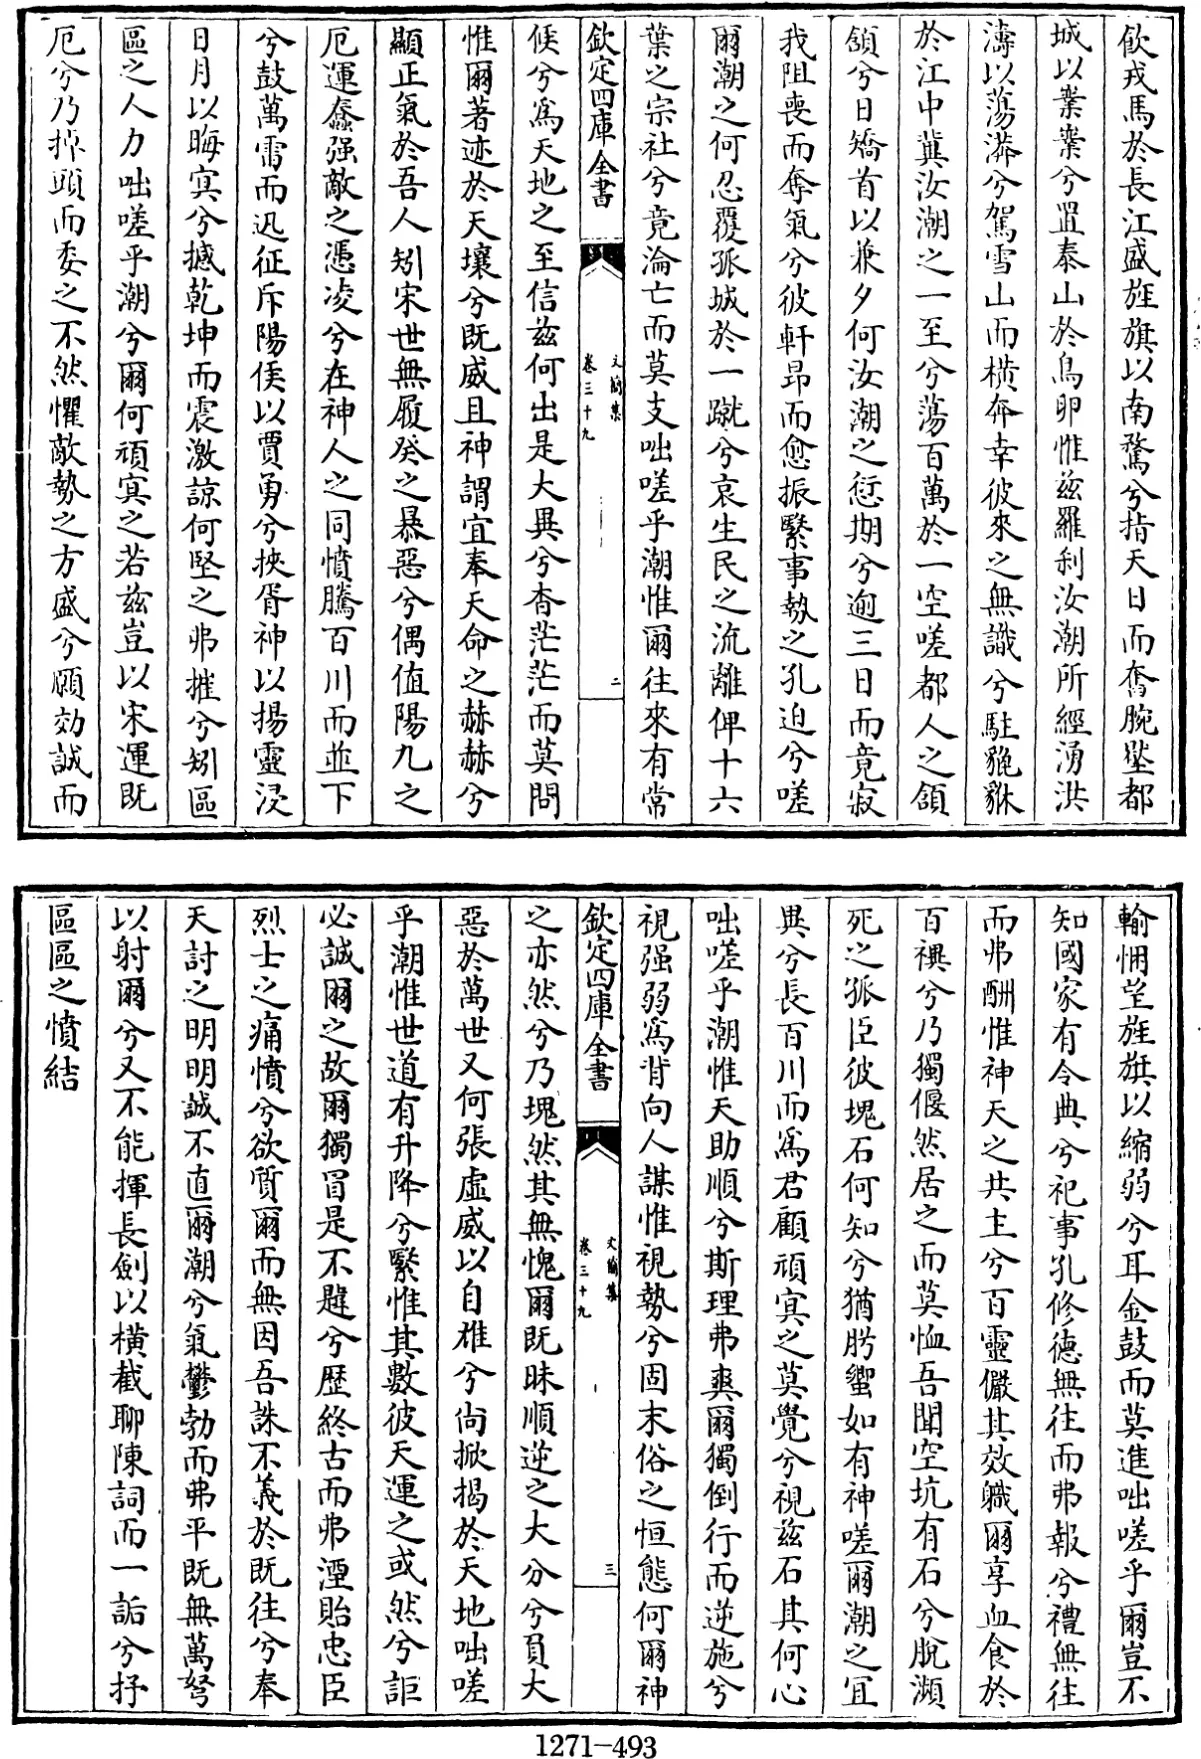 飲戎馬於長江盛旌旗以南騖兮指天日而奮腕墜都
城以業業兮置泰山於鳥卵惟兹羅刹汝潮所經湧洪
濤以蕩潏兮駕雪山而横奔幸彼來之無識兮駐貔貅
於江中冀汝潮之一至兮蕩百萬於一空嗟都人之頷
頷兮日矯首以兼夕何汝潮之愆期兮逾三日而竟寂
我阻喪而奪氣兮彼軒昂而愈振繄事勢之孔迫兮嗟
爾潮之何忍覆孤城於一蹴兮哀生民之流離俾十六
葉之宗社兮竟淪亡而莫支咄嗟乎潮惟爾往來有常
欽定四庫全書
文簡集
卷三十九
二
候兮為天地之至信兹何出是大異兮杳茫茫而莫問
惟爾著迹於天壤兮既威且神謂宜奉天命之赫赫兮
顯正氣於吾人矧宋世無履癸之暴惡兮偶值陽九之
厄運蠢强敵之憑凌兮在神人之同憤騰百川而並下
兮鼓萬雷而迅征斥陽侯以賈勇兮挾胥神以揚靈浸
日月以晦冥兮撼乾坤而震激諒何堅之弗摧兮矧區
區之人力咄嗟乎潮兮爾何頑冥之若兹豈以宋運既
厄兮乃掉頭而委之不然懼敵勢之方盛兮願効誠而
輸悃望旌旗以縮弱兮耳金鼓而莫進咄嗟乎爾豈不
知國家有令典兮祀事孔修德無往而弗報兮禮無往
而弗酬惟神天之共主兮百靈儼其效職爾享血食於
百禩兮乃獨偃然居之而莫恤吾聞空坑有石兮脱瀕
死之孤臣彼塊石何知兮猶肹蠁如有神嗟爾潮之冝
異兮長百川而為君顧頑冥之莫覺兮視兹石其何心
咄嗟乎潮惟天助順兮斯理弗爽爾獨倒行而逆施兮
視强弱為背向人謀惟視勢兮固末俗之恒態何爾神
欽定四庫全書
文簡集
卷三十九
三
之亦然兮乃塊然其無愧爾既昧順逆之大分兮負大
惡於萬世又何張虛威以自雄兮尚掀揭於天地咄嗟
乎潮惟世道有升降兮繄惟其數彼天運之或然兮詎
必誠爾之故爾獨冒是不韙兮歴終古而弗湮貽忠臣
烈士之痛憤兮欲質爾而無因吾誅不義於既往兮奉
天討之明明誠不直爾潮兮氣鬱勃而弗平既無萬弩
以射爾兮又不能揮長劍以横截聊陳詞而一詬兮抒
區區之憤結
1271-493